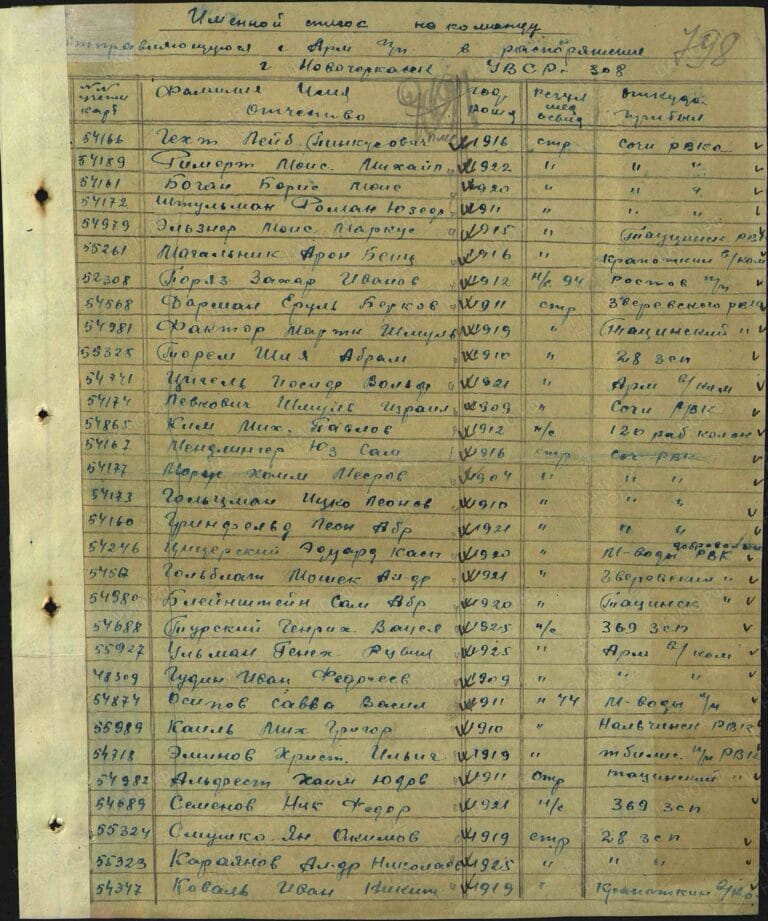 Именной список на команду
отправляющуюся с Арм п/п в распоряжение
г Новочеркасск УВСР- 308
798
NN учетн карт Фамилия Имя Отчество год рожд резул мед освид откуда прибыл
54166 Гехт Лейб Пинкусович 1916 стр Сочи РВКа
54189 Гимерт Моис. Михайл 1922 " " "
54161 Боган Борис Моис 1920 " " "
54172 Штульман Роман Юзеф 1911 " " "
54979 Эльзнер Моис Маркус 1915 " Тацинск РВК
55261 Магальник Арон Бенц 1916 " Крапоткин в/ком
52308 Горяз Захар Иванов 1912 н/с 94 Ростов п/п
54568 Фарман Еруль Берков 1911 стр Зверевского РВК
54981 Фактор Мартн Шмуль 1919 " Тацинский "
55325 Горем Шия Абрам 1910 " 28 зсп
54741 Цигель Иосиф Вольф 1921 " Арм в/ком
54174 Левкович Шмуль Израил 1909 " Сочи РВК
54865 Ким Мих. Павлов 1912 н/с 120 раб колон
54167 Мендлингер Юз Сам 1916 стр Соч РВК
54177 Хаим Месров 1904 " " "
54173 Гольцман Ицко Леонов 1910 " " "
54160 Гринфельд Леон Абр 1921 " " "
54246 Цицерский Эдуард Касп 1920 " М-воды РВК доброволь
5456 Гольблат Мошек Ал-др 1921 " Зверевский "
54980 Блейнштейн Сам Абр 1920 " Тацинск "
54688 Турский Генрих Вацл 1925 н/с 369 зсп
55927 Ульман Генех Рувил 1925 " Арм в/ком
48309 Гудин Иван Федосеев 1909 " " "
54874 Осипов Савва Васил 1911 " 44 М-воды п/п
55989 Каиль Мих Григор 1910 " Нальчинск РВК
54718 Эминов Христ. Ильич 1919 " Тбилис. п/п РВК
54982 Альфест Хаим Юдов 1911 стр Тацинский "
54689 Семенов Ник Федор 1921 н/с 369 зсп
55324 Слушко Ян Акимов 1919 стр 28 зсп
55323 Караянов Ал-др Николаев 1925 " " "
54347 Коваль Иван Никит 1919 " Крапоткин в/ко